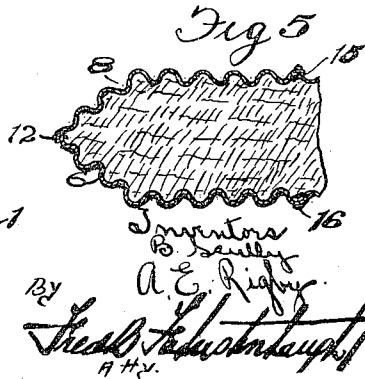 Fig 5
15
8
12
6
1
16
Inventors
B. Scully
A. E. Rigby.
By
Fred B. Fetherstonhaugh
Att'y.